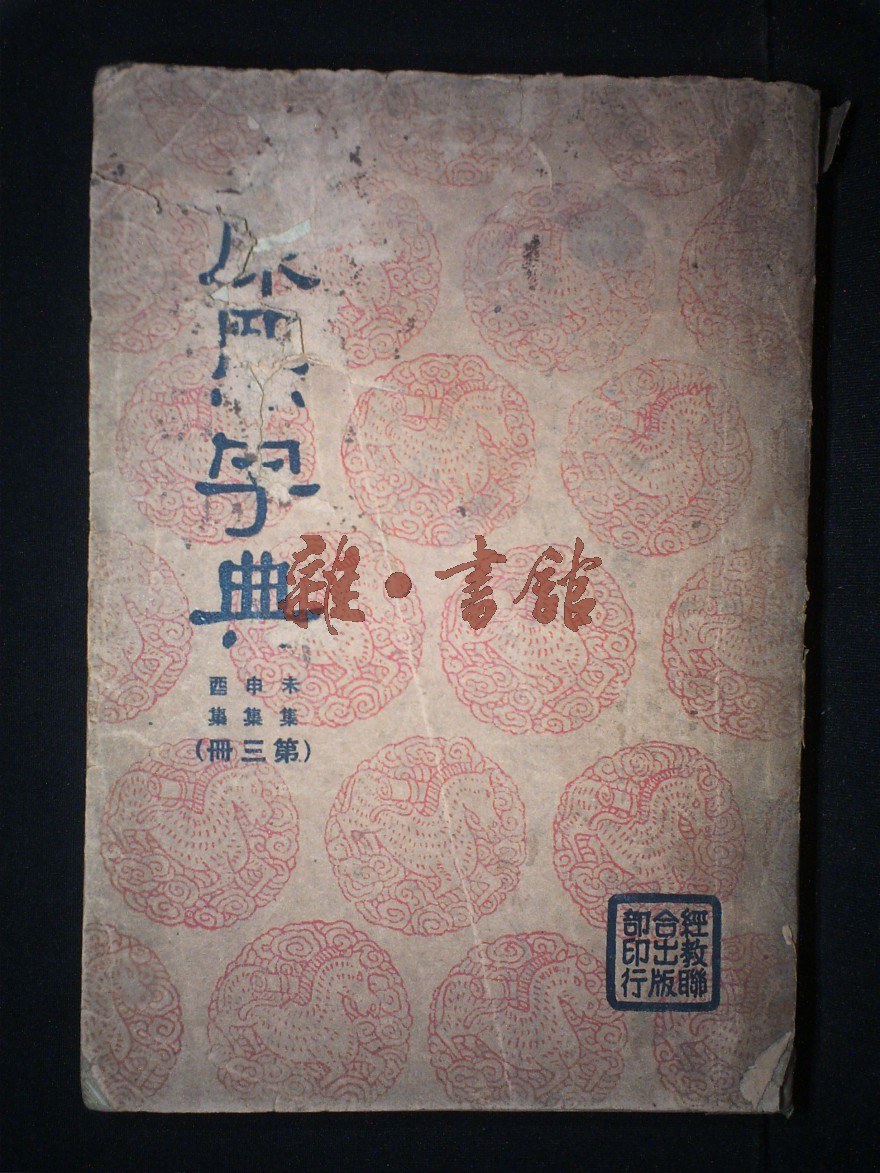 康熙字典
未集
申集
酉集
(第三冊)
雜·書館
經教聯
合出版
部印行